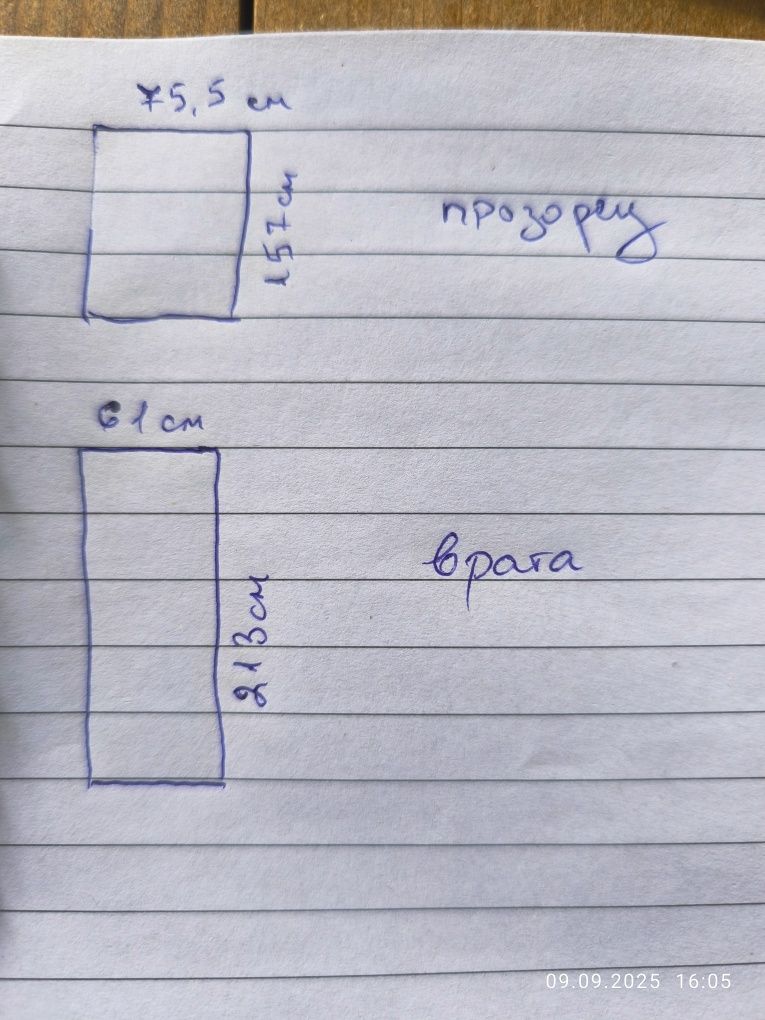 75,5 см
157 см
прозорец
61 см
213 см
врата
09.09.2025 16:05